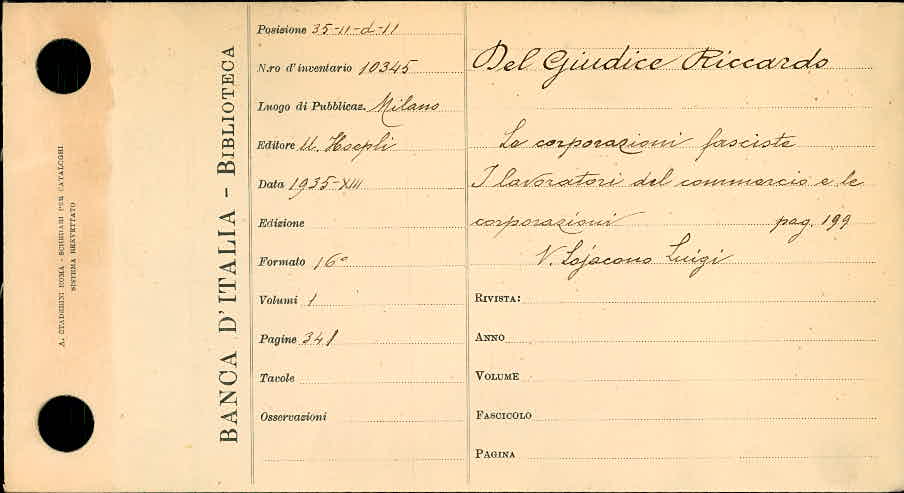 A. STADERINI ROMA - SCHEDARI PER CATALOGHI
SISTEMA BREVETTATO
BANCA D'ITALIA - BIBLIOTECA
Posizione 35-11-d-11
N.ro d'inventario 10345
Luogo di Pubblicaz. Milano
Editore U. Hoepli
Data 1935-XIII
Edizione
Formato 16°
Volumi 1
Pagine 341
Tavole
Osservazioni
Del Giudice Riccardo
Le corporazioni fasciste
I lavoratori del commercio e le
corporazioni pag. 199
V. Lojacono Luigi
RIVISTA:
ANNO
VOLUME
FASCICOLO
PAGINA